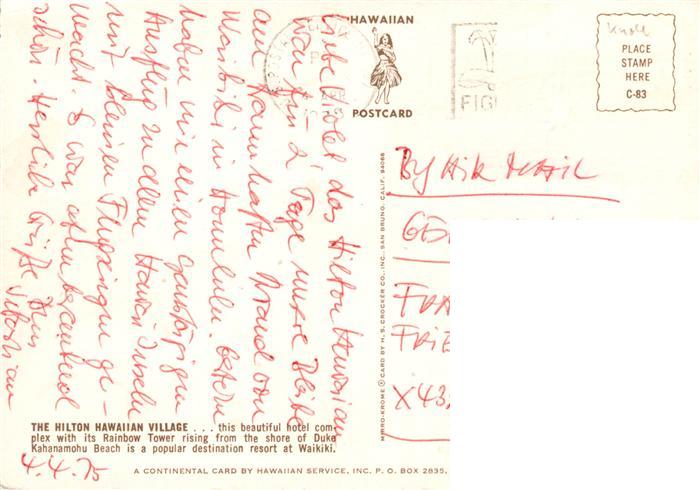 HAWAIIAN
POSTCARD
FIG
Knoll
PLACE
STAMP
HERE
C-83
Liebe Violet das Hilton Hawaiian
war für 2 Tage unsere Bleibe
am traumhaften Strand von
Waikiki in Honolulu. Gestern
haben wir einen ganztägigen
Ausflug zu allen Hawaii Inseln
mit kleinen Flugzeugen ge-
macht. Es war atemberaubend
schön. Herzliche Grüße Dein
Sebastian
4.4.75
By AIR MAIL
GE
FRA
FRIE
X43
THE HILTON HAWAIIAN VILLAGE . . . this beautiful hotel com-
plex with its Rainbow Tower rising from the shore of Duke
Kahanamohu Beach is a popular destination resort at Waikiki.
A CONTINENTAL CARD BY HAWAIIAN SERVICE, INC. P. O. BOX 2835,
MIRRO-KROME ® CARD BY H. S. CROCKER CO., INC., SAN BRUNO, CALIF. 94066